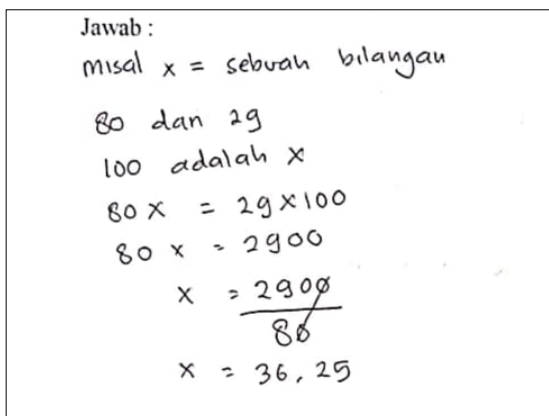 Jawab :
misal x = sebuah bilangan
80 dan 29
100 adalah x
80 x = 29 x 100
80 x = 2900
x = 2900
80
x = 36,25